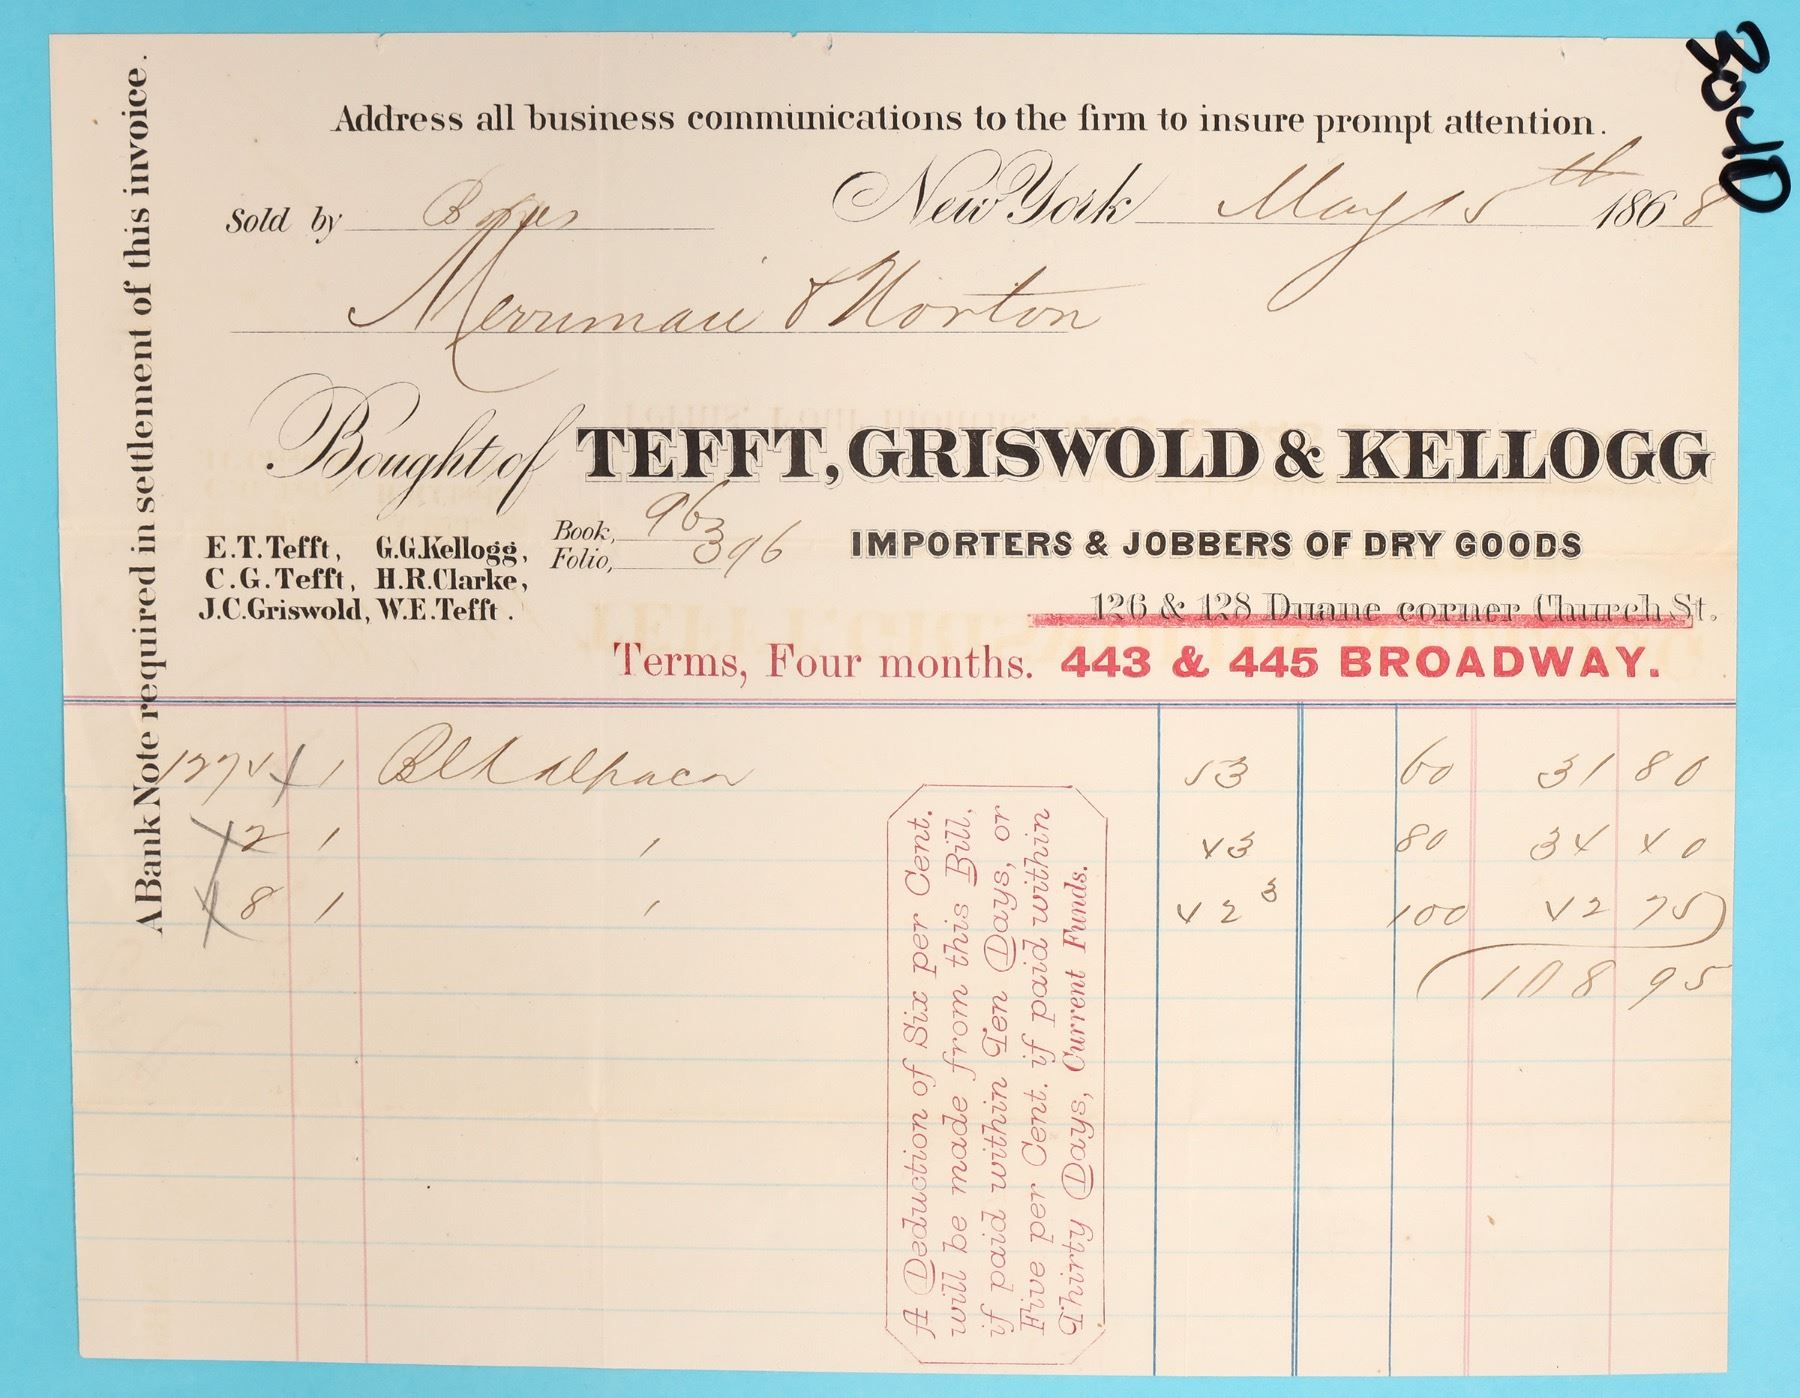 Address all business communications to the firm to insure prompt attention.
Sold by
New York May 15th 1868
Merriman & Norton
Bought of TEFFT, GRISWOLD & KELLOGG
Book, 96
Folio, 396
IMPORTERS & JOBBERS OF DRY GOODS
E.T.Tefft, G.G.Kellogg,
C.G.Tefft, H.R.Clarke,
J.C.Griswold, W.E.Tefft.
126 & 128 Duane corner Church St.
Terms, Four months. 443 & 445 BROADWAY.
A Bank Note required in settlement of this invoice.
1274 1 Blk Alpaca 53 60 31 80
2 1 " 43 80 34 40
8 1 " 42 3 100 42 75
108 95
A Deduction of Six per Cent.
will be made from this Bill,
if paid within Ten Days, or
Five per Cent. if paid within
Thirty Days, Current Funds.